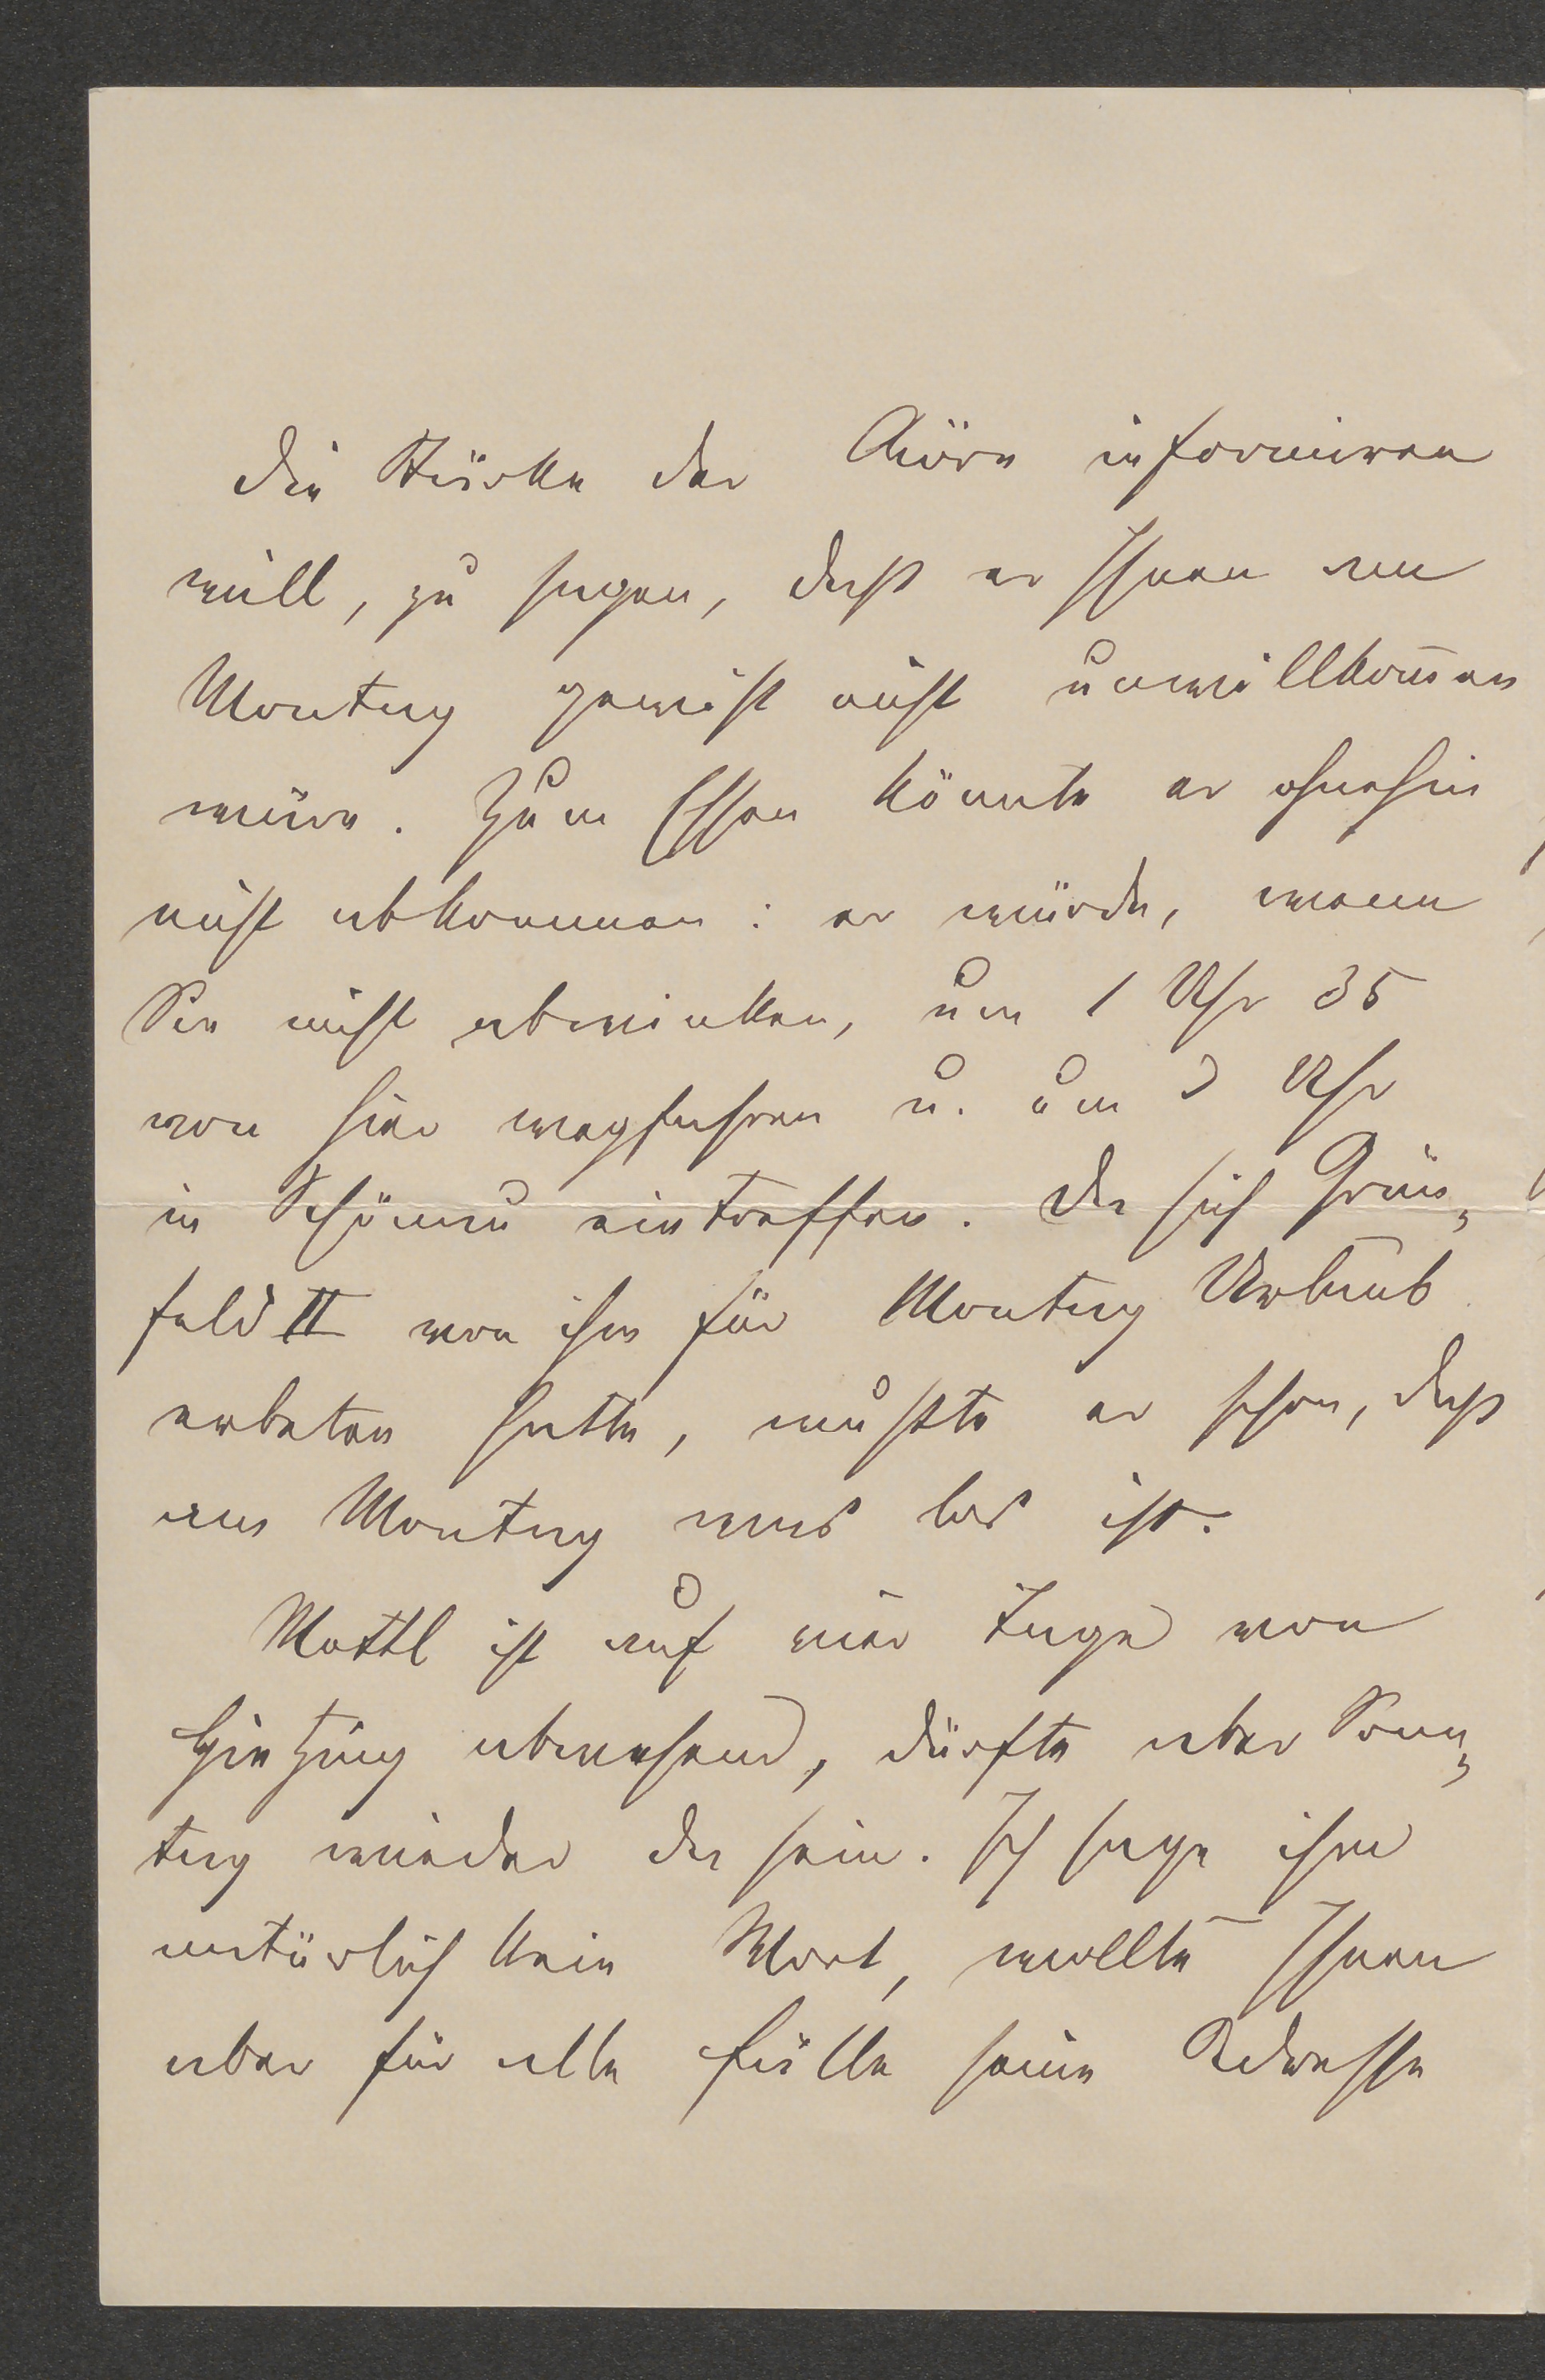 die Stärke der Chöre informiren
will, zu sagen, daß er Ihnen am
Montag gewiß nicht unwillkom̄en
wäre. Zum Essen könnte er ohnehin
nicht abkommen: er würde, wenn
Sie nicht abwinken, um 1 Uhr 35
von hier wegfahren u. um 3 Uhr
in Schönau eintreffen. Da sich Grün„
feld II von ihm für Montag Urlaub
erbeten hatte, wußte er schon, daß
am Montag was los ist.
Mottl ist auf vier Tage von
Hietzing abwesend, dürfte aber Sonn„
tag wieder da sein. Ich sage ihm
natürlich kein Wort, wollte Ihnen
aber für alle Fälle seine Adresse